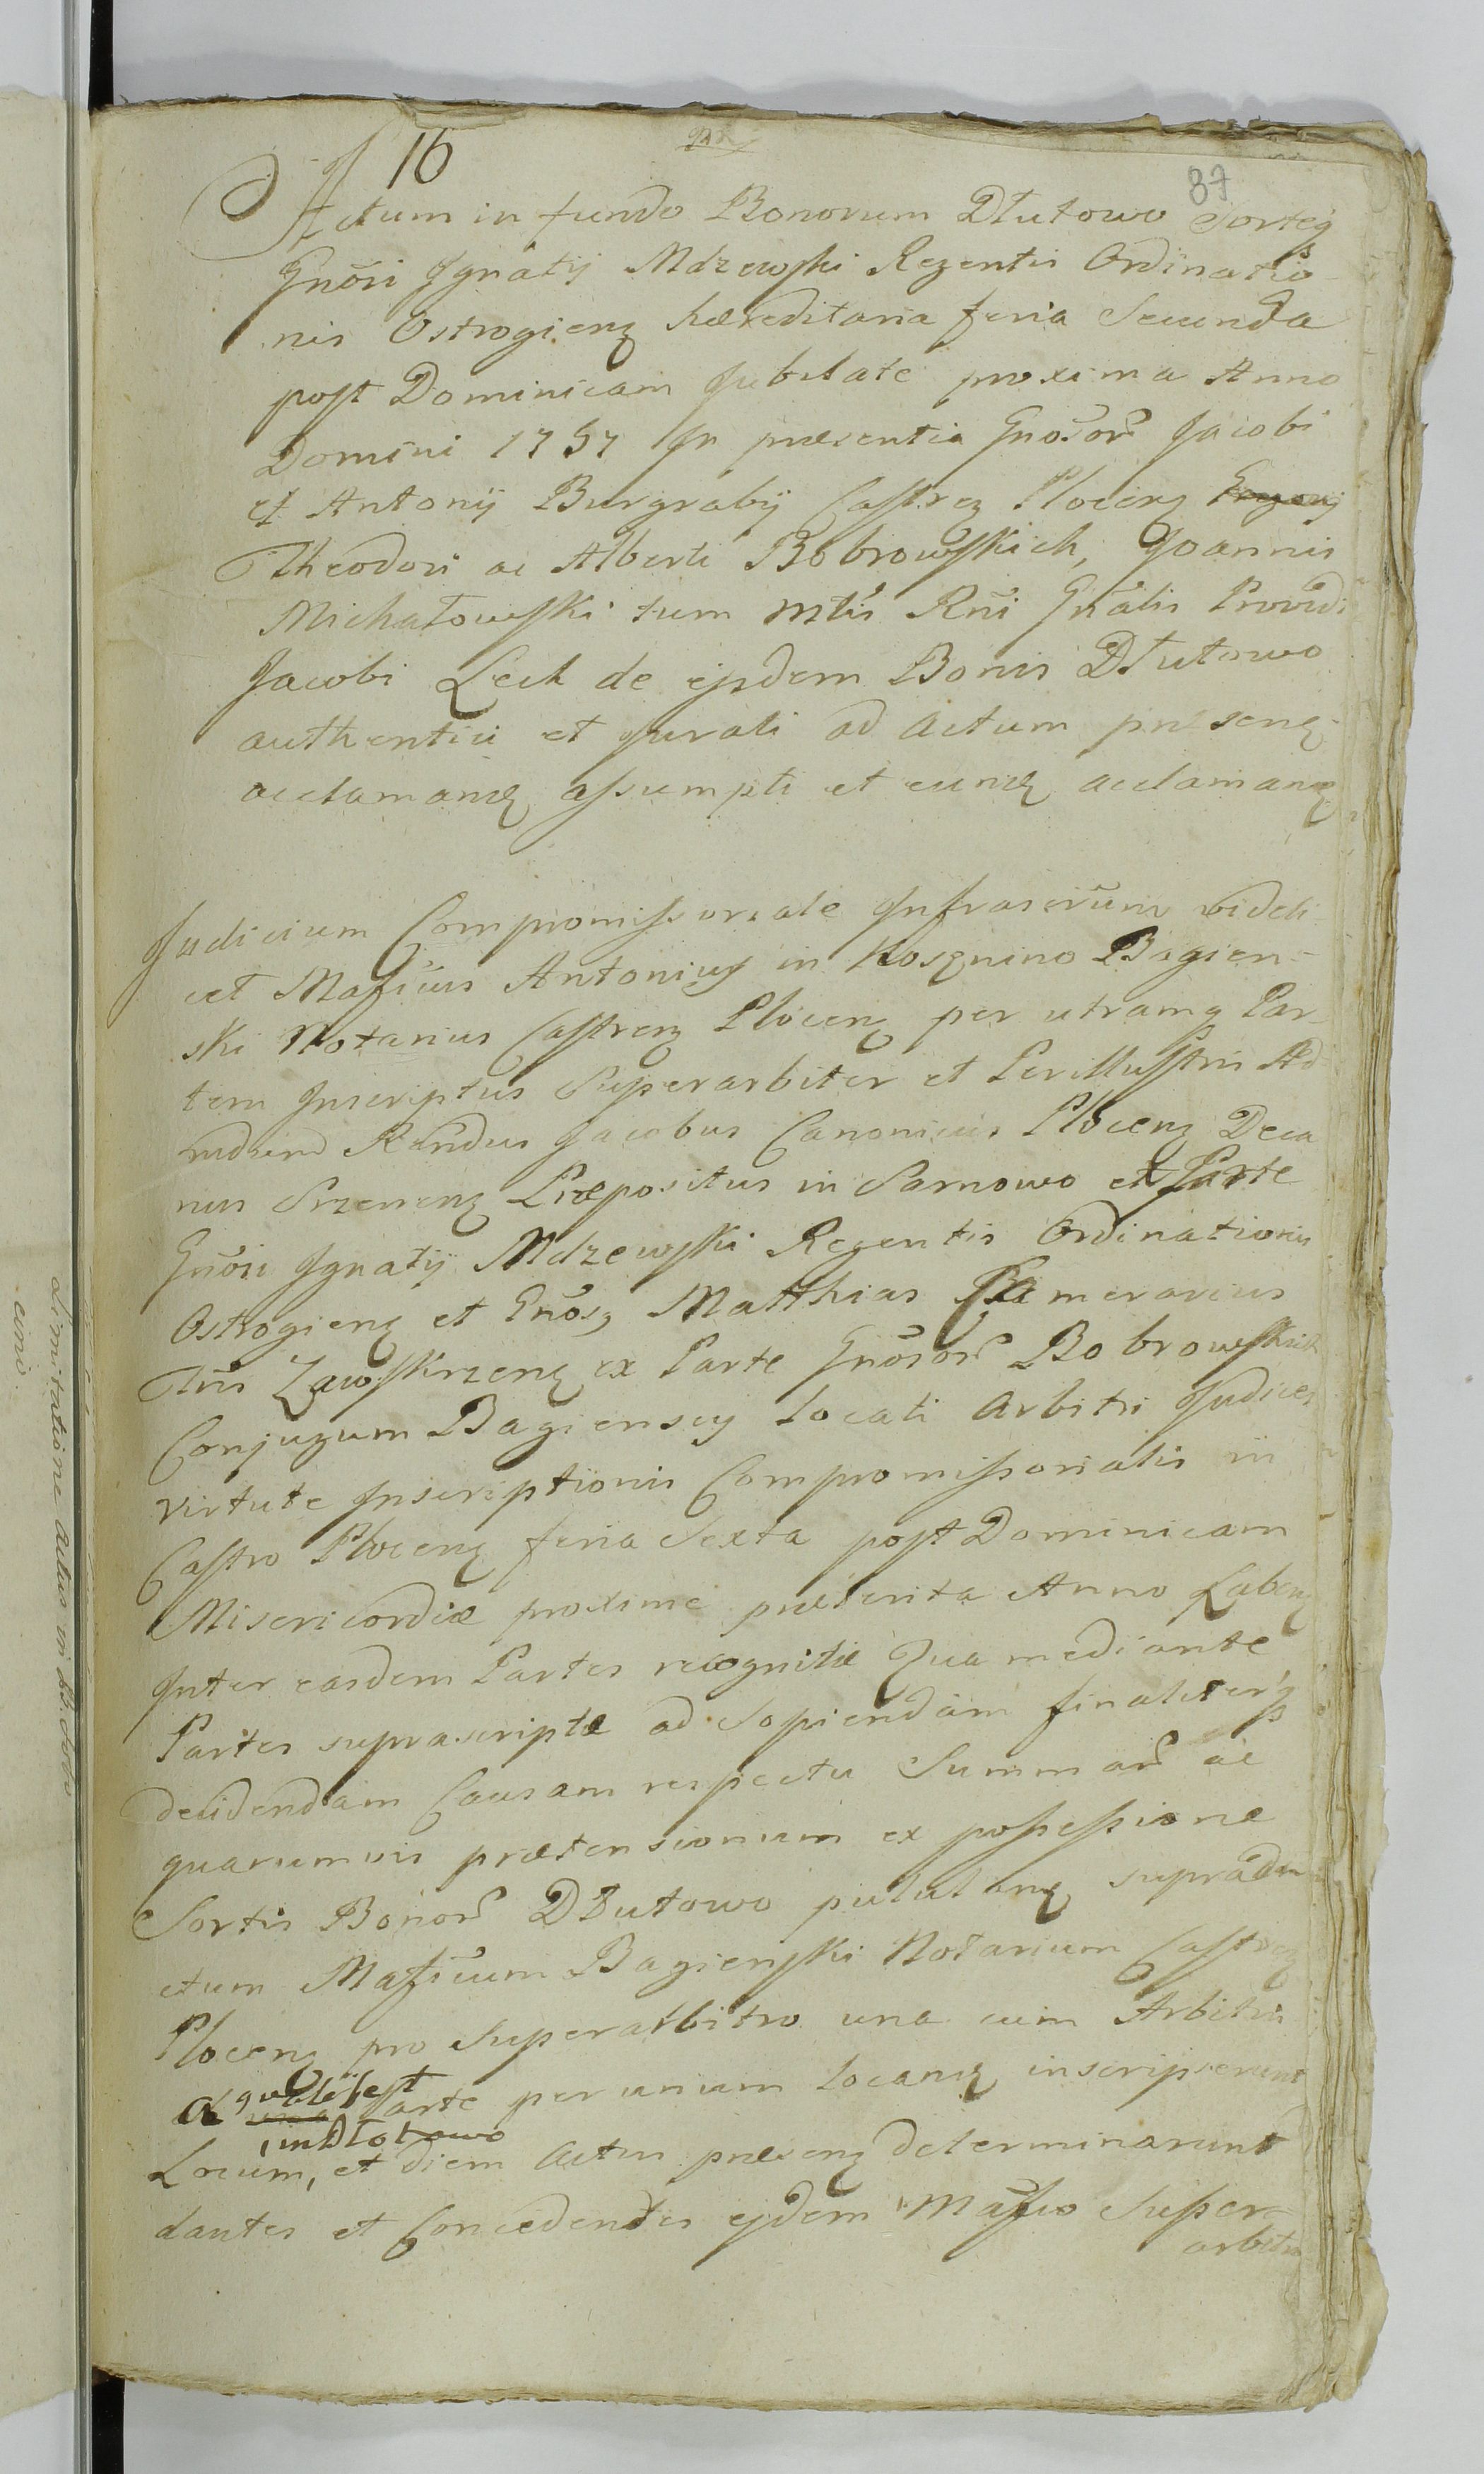 16
87
Actum in fundo Bonorum Dłutowo Sorteq
Gnosi Ignatij Mdzewski Regentis Ordinatio
nis Ostrogienq hæreditaria feria Secunda
post Dominicam Jubilate proxima Anno
Domini 1757 In præsentia Gnosor Jacobi
et Antonij Burgrabij Castrenq Plocenq
Theodori ac Alberti Bobrowskich, Joannis
Michałowski tum Mtis Rni Gnalis Providi
Jacobi Lech de ejsdem Bonis Dłutowo
authentici et Jurati ad Actum præsenq
acclamanq assumpti et eumq acclamanq
Judicium Compromissoriale Infrascrum videli
cet Mafcus Antonius in Kosznino Bagien-
ski Notarius Castrenq Plocenq per utramq Par
tem Inscriptus Superarbiter et Perillustris Ad
mdum Rendus Jacobus Canonicus Plocenq Deca
nus Srzenenq Præpositus in Sarnowo ex Parte
Gnosi Ignatij Mdzewski Regentis Ordinationis
Ostrogienq et Gnosq Matthias Camerarius
Tris Zawskrzenq ex Parte Gnosor Bobrowskich
Conjugum Bagienscy locati Arbitri Judices
virtute Inscriptionis Compromissorialis in
Castro Plocenq feria Sexta post Dominicam
Misericordiæ proxime præterita Anno Labenq
Inter easdem Partes recognitæ Qua mediante
Partes suprascriptæ ad sopiendam finaliterq
decidendam Causam respectu Summar ac
quarumvis prætensionum ex possessione
Sortis Bonor Dłutowo pululanq supradi
ctum Mafcum Bagienski Notarium Castrenq
Plocenq pro Superarbitro una cum Arbitris
a qualibet
una Parte per unum locanq inscripserunt
in Dłotowo
Locum, et diem Actus præsenq determinarunt
dantes et Concedentes ejdem Mafco Super-
arbitro
Limitatione Actus in